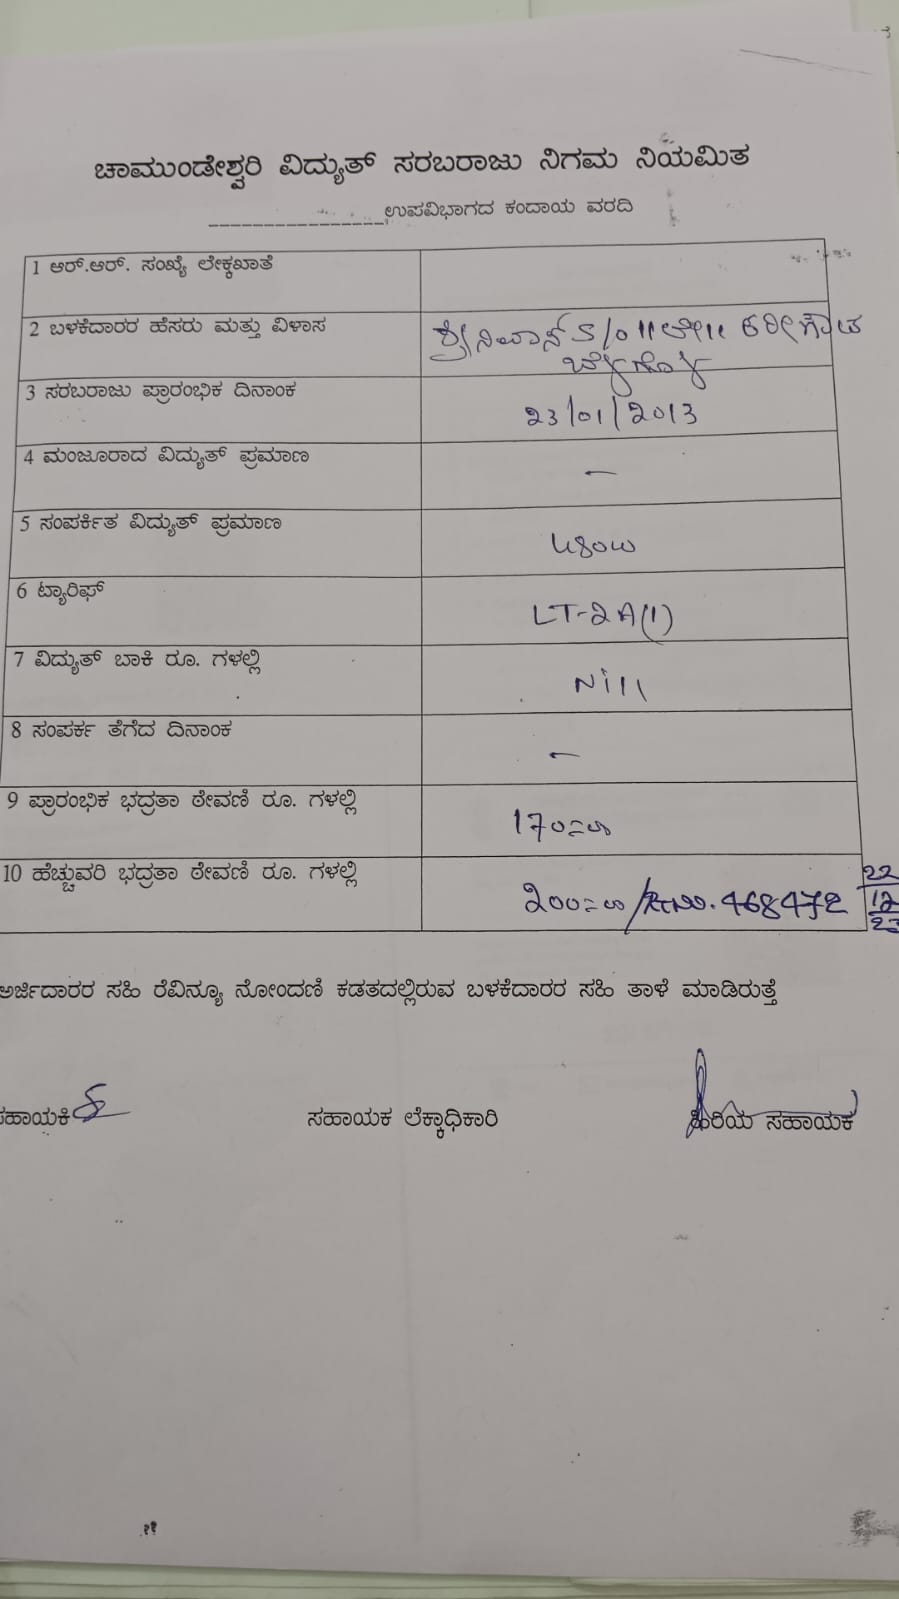 ಚಾಮುಂಡೇಶ್ವರಿ ವಿದ್ಯುತ್ ಸರಬರಾಜು ನಿಗಮ ನಿಯಮಿತ
________________ಉಪವಿಭಾಗದ ಕಂದಾಯ ವರದಿ
1 ಆರ್.ಆರ್. ಸಂಖ್ಯೆ ಲೇಕ್ಕಖಾತೆ
2 ಬಳಕೆದಾರರ ಹೆಸರು ಮತ್ತು ವಿಳಾಸ ಶ್ರೀನಿವಾಸ್ S/o ||ಲೇ|| ಕರೀಗೌಡ
3 ಸರಬರಾಜು ಪ್ರಾರಂಭಿಕ ದಿನಾಂಕ 23/01/2013
4 ಮಂಜೂರಾದ ವಿದ್ಯುತ್ ಪ್ರಮಾಣ -
5 ಸಂಪರ್ಕಿತ ವಿದ್ಯುತ್ ಪ್ರಮಾಣ 480w
6 ಟ್ಯಾರಿಫ್ LT-2A(1)
7 ವಿದ್ಯುತ್ ಬಾಕಿ ರೂ. ಗಳಲ್ಲಿ Nill
8 ಸಂಪರ್ಕ ತೆಗೆದ ದಿನಾಂಕ -
9 ಪ್ರಾರಂಭಿಕ ಭದ್ರತಾ ಠೇವಣಿ ರೂ. ಗಳಲ್ಲಿ 170=00
10 ಹೆಚ್ಚುವರಿ ಭದ್ರತಾ ಠೇವಣಿ ರೂ. ಗಳಲ್ಲಿ 200=00 /Rt.No. 468472 22/12/23
ಅರ್ಜಿದಾರರ ಸಹಿ ರೆವಿನ್ಯೂ ನೋಂದಣಿ ಕಡತದಲ್ಲಿರುವ ಬಳಕೆದಾರರ ಸಹಿ ತಾಳೆ ಮಾಡಿರುತ್ತೆ
ಸಹಾಯಕಿ ಸಹಾಯಕ ಲೆಕ್ಕಾಧಿಕಾರಿ ಹಿರಿಯ ಸಹಾಯಕ